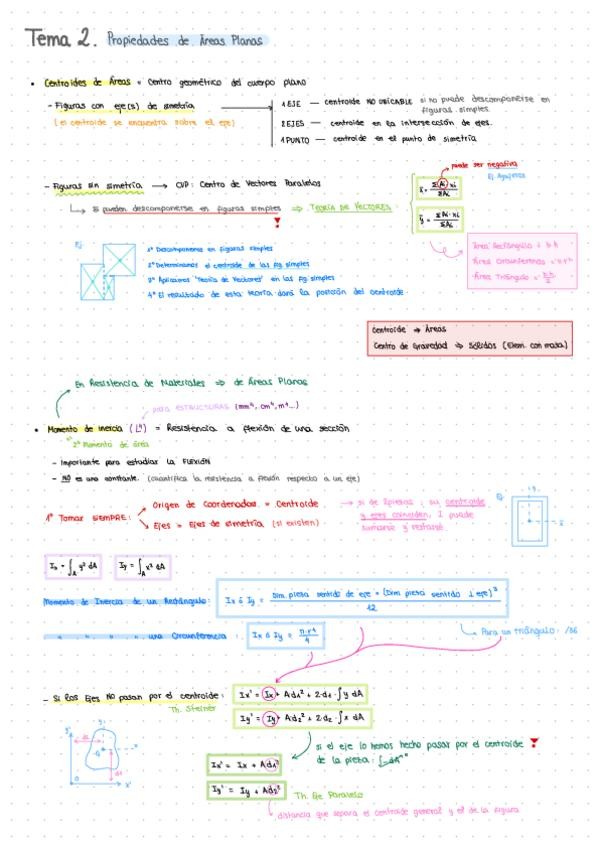 Tema 2. Propiedades de Áreas Planas
• Centroides de Áreas = Centro geométrico del cuerpo plano
- Figuras con eje(s) de simetría
(el centroide se encuentra sobre el eje)
1 EJE — centroide NO UBICABLE si no puede descomponerse en figuras simples
2 EJES — centroide en la intersección de ejes.
1 PUNTO — centroide en el punto de simetría
- Figuras sin simetría → CVP: Centro de Vectores Paralelos
↳ si pueden descomponerse en figuras simples ⇒ TEORÍA DE VECTORES:
puede ser negativa
Ej. Agujeros
x̄ = ΣAi·xi / ΣAi
ȳ = ΣAi·yi / ΣAi
Área Rectángulo = b·h
Área Circunferencia = π·r²
Área Triángulo = b·h / 2
Ej:
1º Descomponemos en figuras simples
2º Determinamos el centroide de las fig. simples
3º Aplicamos "Teoría de Vectores" en las fig. simples
4º El resultado de esta teoría dará la posición del centroide
Centroide → Áreas
Centro de Gravedad ⇒ Sólidos (Elem. con masa)
En Resistencia de Materiales ⇒ de Áreas Planas
para ESTRUCTURAS (mm⁴, cm⁴, m⁴...)
• Momento de inercia (L⁴) = Resistencia a flexión de una sección
2º Momento de área
- Importante para estudiar la FLEXIÓN
- NO es una constante. (cuantifica la resistencia a flexión respecto a un eje)
1º Tomar SIEMPRE:
Origen de Coordenadas = Centroide
Ejes = Ejes de simetría (si existen)
→ si de 2 piezas, su centroide y ejes coinciden, I puede sumarse y restarse.
Ej:
Ix = ∫A y² dA
Iy = ∫A x² dA
Momento de Inercia de un Rectángulo: Ix ó Iy = Dim. pieza sentido de eje · (Dim. pieza sentido ⊥ eje)³ / 12
" " " " una Circunferencia: Ix ó Iy = π·r⁴ / 4
Para un triángulo: /36
- Si los Ejes NO pasan por el centroide:
Th. Steiner
Ix' = Ix + A·d₁² + 2·d₁·∫y dA
Iy' = Iy + A·d₂² + 2·d₂·∫x dA
si el eje lo hemos hecho pasar por el centroide de la pieza:
Ix' = Ix + A·d₁²
Iy' = Iy + A·d₂²
Th. Eje Paralelo
distancia que separa el centroide general y el de la figura